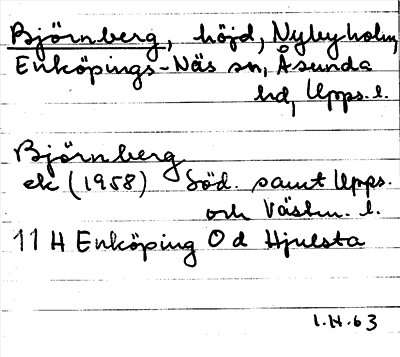 Björnberg, höjd, Nybyholm,
Enköpings-Näs sn, Åsunda
hd, Upps. l.
Björnberg
ek (1958) Söd. samt Upps.
och Västm. l.
11 H Enköping 0 d Hjulsta
1.H.63